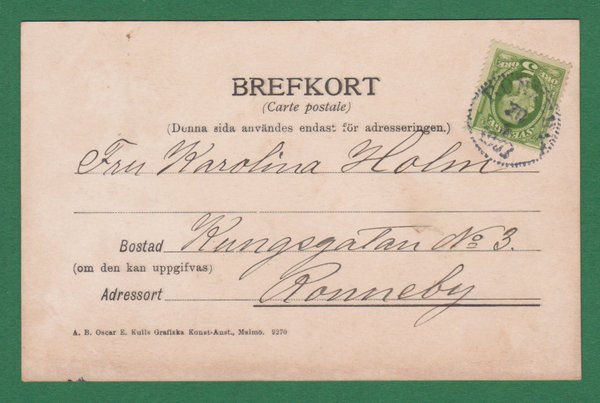 BREFKORT
(Carte postale)
(Denna sida användes endast för adresseringen.)
Fru Karolina Holm
Bostad Kungsgatan No 3.
(om den kan uppgifvas)
Adressort Ronneby
A. B. Oscar E. Kulls Grafiska Konst-Anst., Malmö. 9270